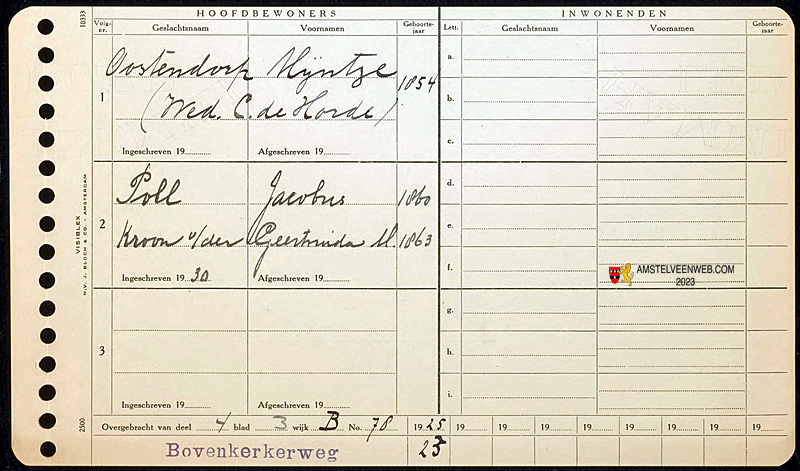 HOOFDBEWONERS INWONENDEN
Volg-nr. Geslachtsnaam Voornamen Geboorte-jaar Lett. Geslachtsnaam Voornamen Geboorte-jaar
10333
1 Oostendorp Mijntje 1854
(Wed. C. de Horde)
Ingeschreven 19 Afgeschreven 19
2 Poll Jacobus 1860
Kroon v/der Geertruida M. 1863
Ingeschreven 1930 Afgeschreven 19
3
Ingeschreven 19 Afgeschreven 19
a.
b.
c.
d.
e.
f.
g.
h.
i.
AMSTELVEENWEB.COM
2023
VISIBLEX
N.V. J. BLOCH & CO. - AMSTERDAM
2500
Overgebracht van deel 4 blad 3 wijk B No. 78 1925 19 19 19 19 19 19 19 19
Bovenkerkerweg 23